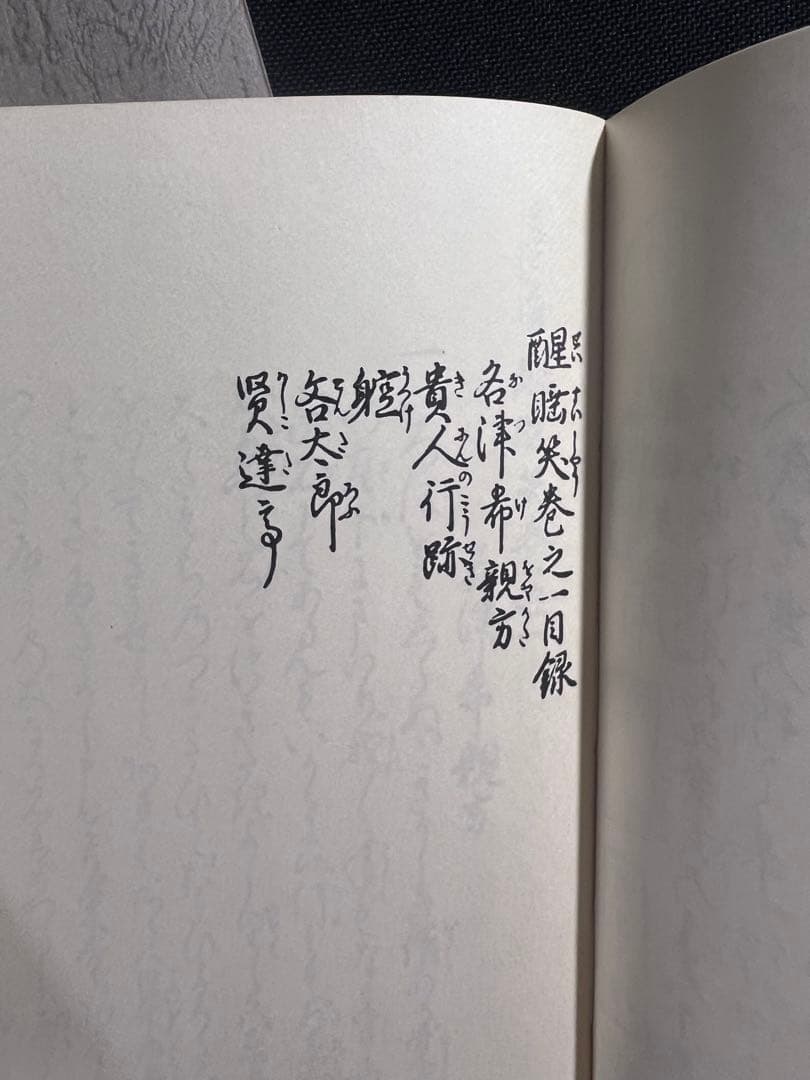 醒睡笑巻之一目録
名津希親方
貴人行跡
躻
吝太郎
賢達亭